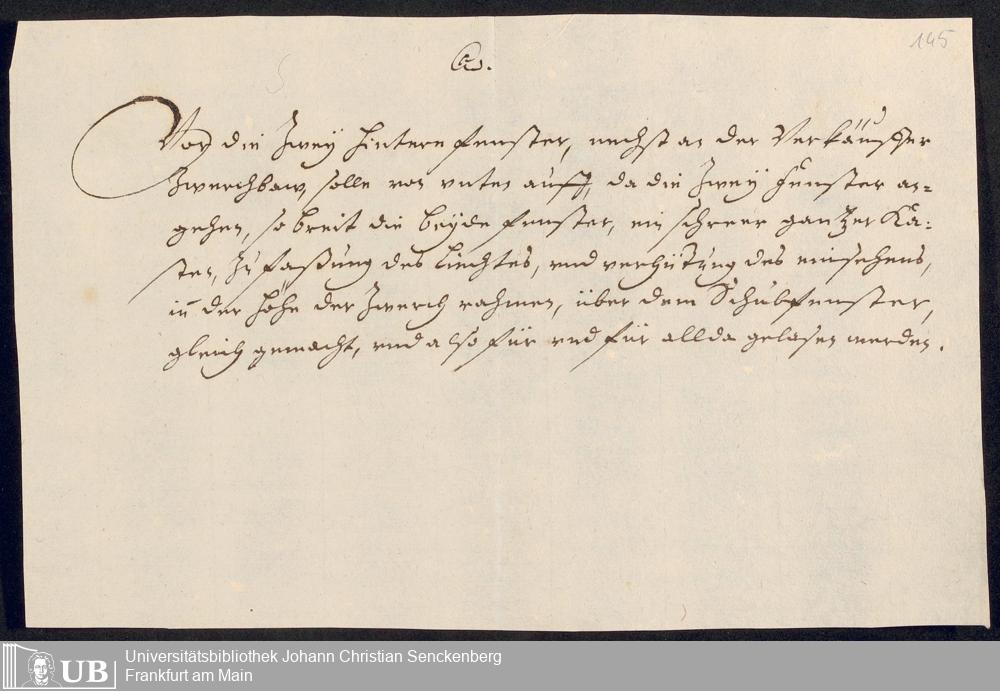 145
A.
Vor die Zweÿ hintere fenster, nechst an der Verkäuffer
Zwerchbaw, solle von vnten auff, da die Zweÿ fenster an=
gehen, so breit die beÿde fenster, ein schreer gantzer Ka=
sten, Zu faßung des Liechtes, vnd verhütung des einsehens,
in der höhe der Zwerch rahmen, über dem Schubfenster,
gleich gemacht, vnd also für vnd für allda gelasen werden.
UB
Universitätsbibliothek Johann Christian Senckenberg
Frankfurt am Main